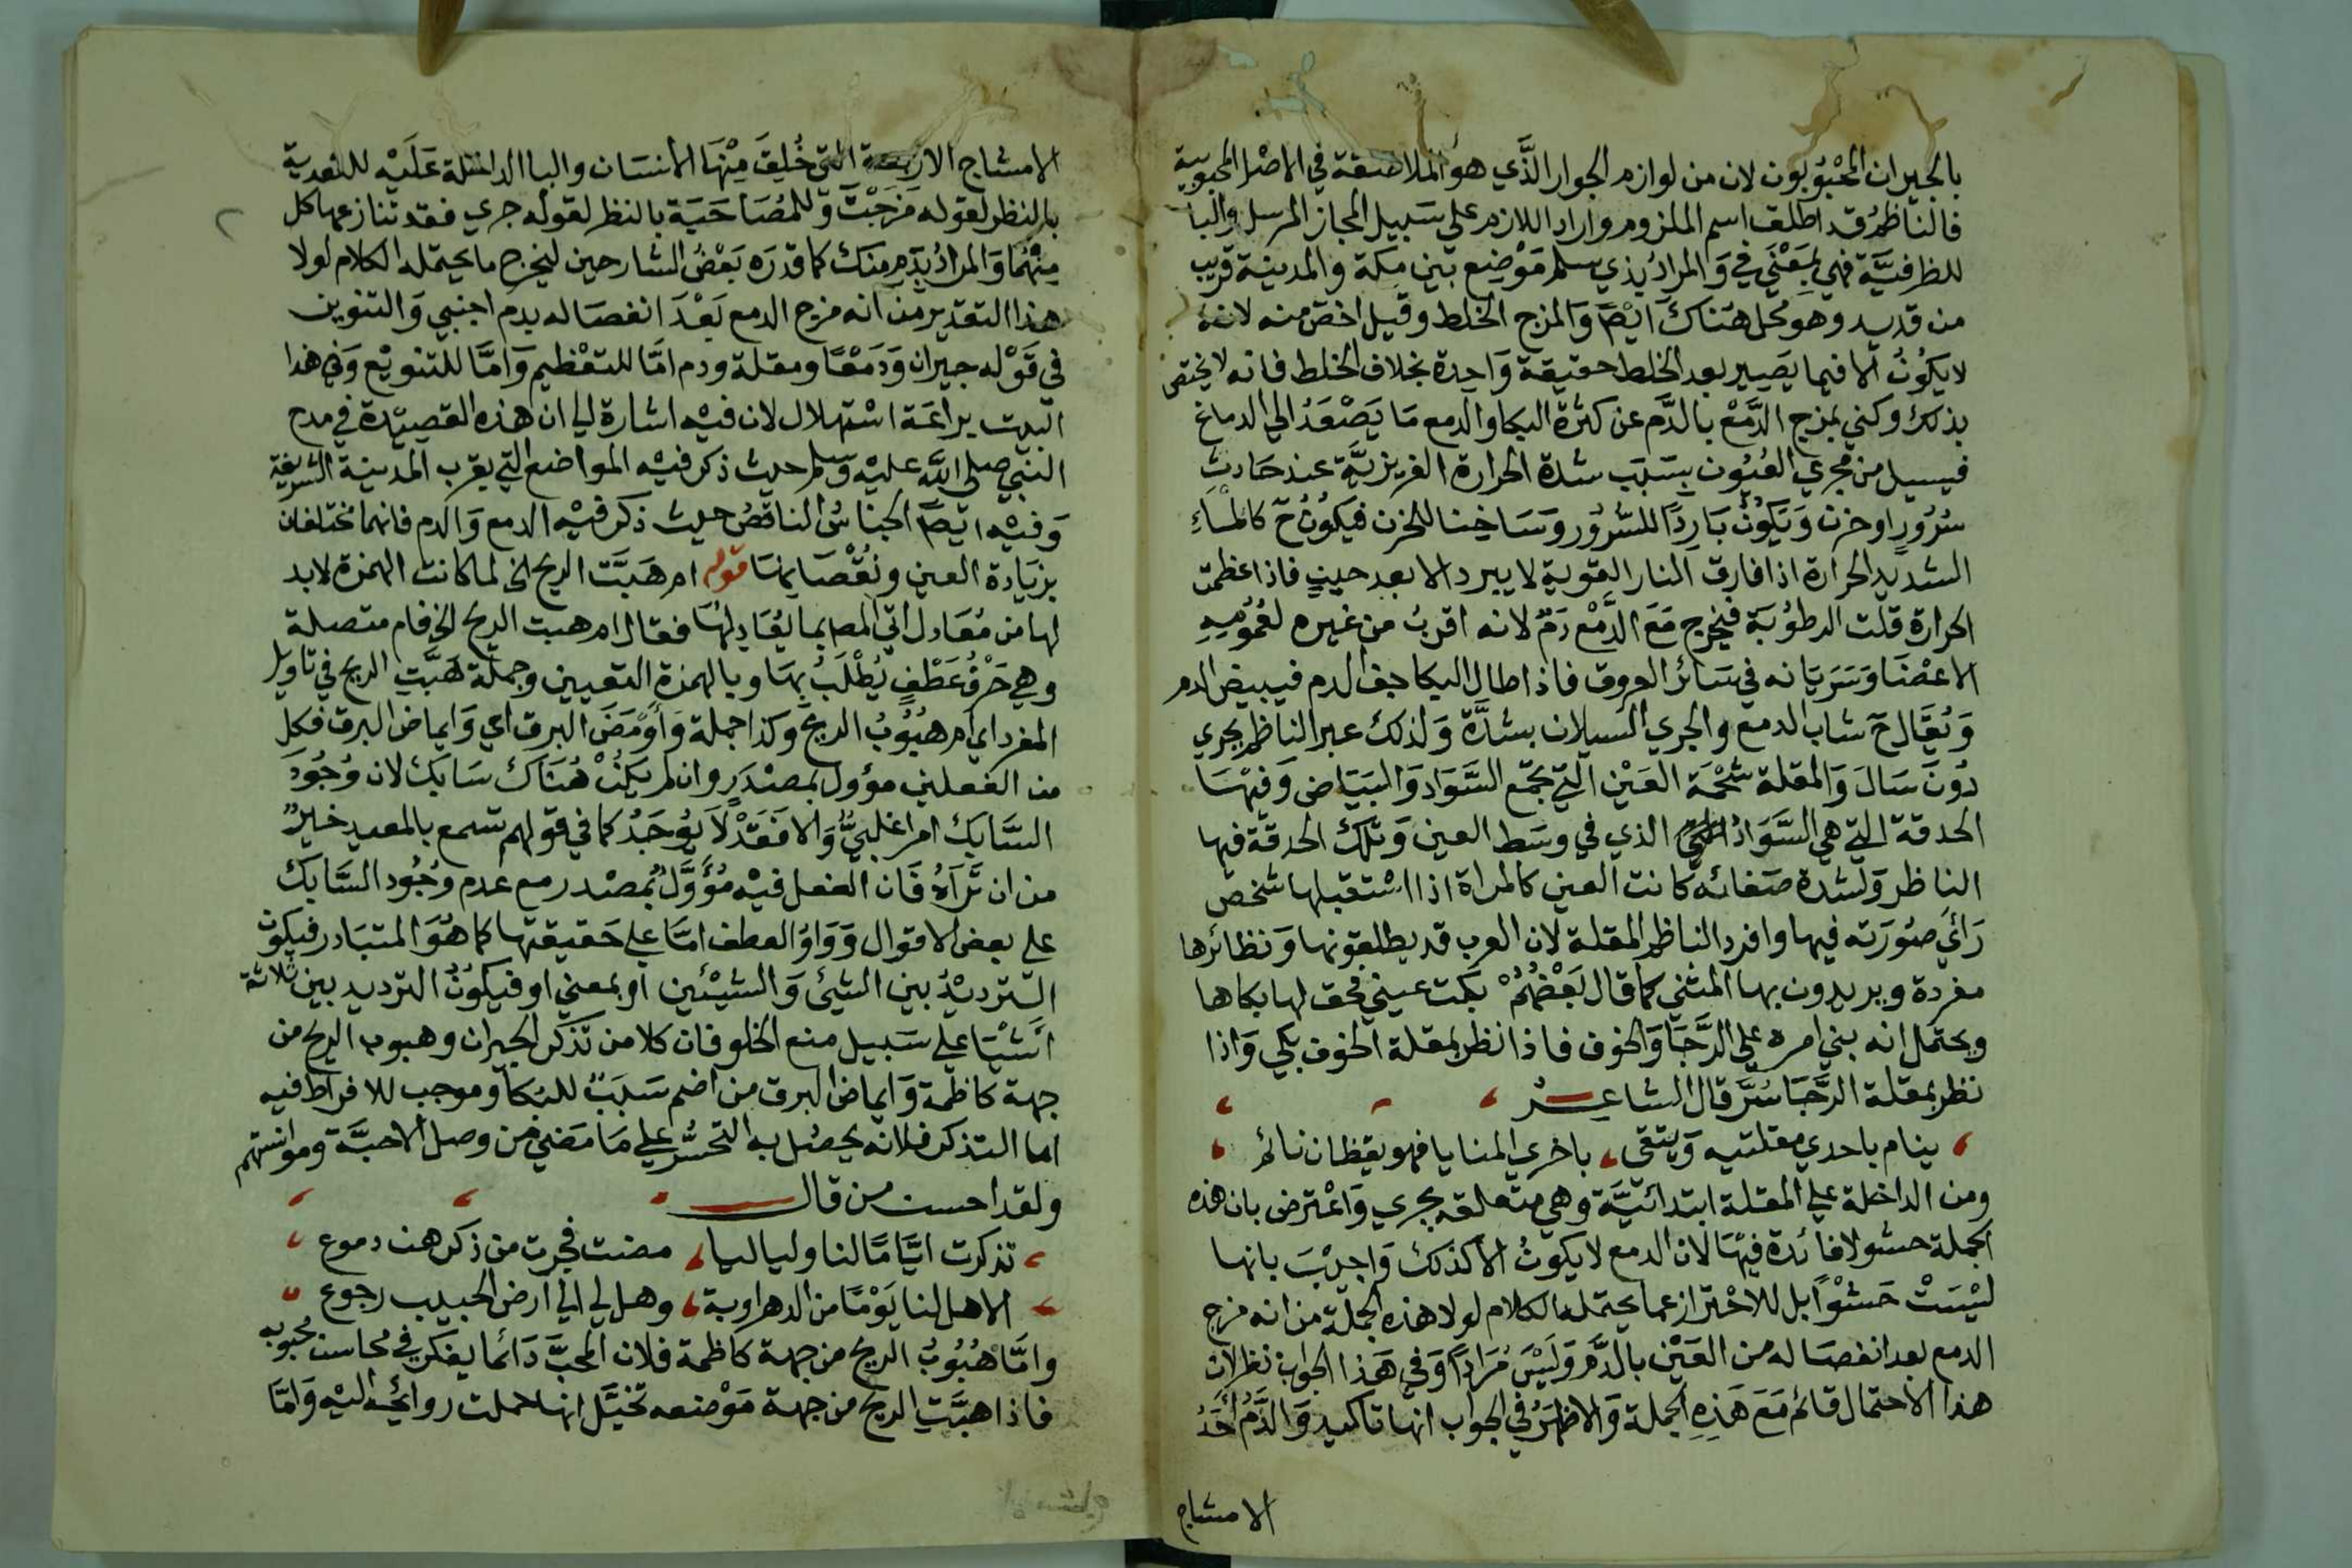 بالجيران المحبوبون لان من لوازم الجوار الذي هو الملاصقة في الاصل المحبوبية
فالناظم قد اطلق اسم الملزوم واراد اللازم علي سبيل المجاز المرسل والبا
للظرفية فهي بمعني في والمراد بذي سلم موضع بين مكة والمدينة قريب
من قديد وهو محل هناك ايضا والمزج الخلط وقيل اخص منه لانه
لا يكون الا فيما يصير بعد الخلط حقيقة واحدة بخلاف الخلط فانه لا يختص
بذلك وكني بمزج الدمع بالدم عن كثرة البكا والدمع ما يصعد الي الدماغ
فيسيل من مجري العيون بسبب شدة الحرارة الغريزية عند حادث
سرور او حزن ويكون باردا للسرور وساخنا للحزن فيكون ح كالماء
الشديد الحرارة اذا فارق النار القوية لا يبرد الا بعد حين فاذا عظمت
الحرارة قلت الرطوبة فيخرج مع الدمع دم لانه اقرب من غيره لعمومه
الاعضا وسريانه في سائر العروق فاذا طال البكا جف الدم فيبيض الدم
ويقال ح شاب الدمع والجري السيلان بشدة ولذلك عبر الناظم بجري
دون سال والمقلة شحمة العين التي تجمع السواد والبياض وفيها
الحدقة التي هي السواد الذي في وسط العين وتلك الحدقة فيها
الناظر ولشدة صفائه كانت العين كالمراة اذا استقبلها شخص
رأي صورته فيها وافرد الناظم المقلة لان العرب قد يطلقونها ونظائرها
مفردة ويريدون بها المثني كما قال بعضهم بكت عيني فحق لها بكاها
ويحتمل انه بني امره علي الرجا والخوف فاذا نظر بمقلة الخوف بكي واذا
نظر بمقلة الرجا سر قال الشاعر
ينام باحدي مقلتيه ويتقي باخري المنايا فهو يقظان نائم
ومن الداخلة علي المقلة ابتدائية وهي متعلقه بجري واعترض بان هذه
الجملة حشو لا فائدة فيها لان الدمع لا يكون الا كذلك واجيب بانها
ليست حشوا بل للاحتراز عما يحتمله الكلام لولا هذه الجملة من انه مزج
الدمع بعد انفصاله من العين بالدم وليس مرادا وفي هذا الجواب نظر لان
هذا الاحتمال قائم مع هذه الجملة والاظهر في الجواب انها تاكيد والدم احد
الامشاج
الامشاج الاربعة التي خلق منها الانسان والبا الداخلة عليه للتعدية
بالنظر لقوله مزجت وللمصاحبة بالنظر لقوله جري فقد تنازعها كل
منهما والمراد بدم منك كما قدره بعض الشارحين ليخرج ما يحتمله الكلام لولا
هذا التقدير من انه مزج الدمع بعد انفصاله بدم اجنبي والتنوين
في قوله جيران ودمعا ومقلة ودم اما للتعظيم واما للتنويع وفي هذا
البيت براعة استهلال لان فيه اشارة الي ان هذه القصيدة في مدح
النبي صلي الله عليه وسلم حيث ذكر فيه المواضع التي بقرب المدينة الشريفة
وفيه ايضا الجناس الناقص حيث ذكر فيه الدمع والدم فانهما مختلفان
بزيادة العين ونقصانها قوله ام هبت الريح الخ لما كانت الهمزة لابد
لها من معادل اتي المص بما يعادلها فقال ام هبت الريح الخ فام متصلة
وهي حرف عطف يطلب بها وبالهمزة التعيين وجملة هبت الريح في تاويل
المفرد اي ام هبوب الريح وكذا جملة واومض البرق اي وايماض البرق فكل
من الفعلين مؤول بمصدر وان لم يكن هناك سابك لان وجود
السابك امر اغلبي والا فقد لا يوجد كما في قولهم تسمع بالمعيد خير
من ان تراه فان الفعل فيه مؤول بمصدر مع عدم وجود السابك
علي بعض الاقوال وواو العطف اما علي حقيقتها كما هو المتبادر فيكون
الترديد بين الشيئ والشيئين او بمعني او فيكون الترديد بين ثلاثة
اشيا علي سبيل منع الخلو فان كلا من تذكر الجيران وهبوب الريح من
جهة كاظمة وايماض البرق من اضم سبب للبكا وموجب للافراط فيه
اما التذكر فلانه يحصل به التحسر علي ما مضي من وصل الاحبة وموانستهم
ولقد احسن من قال
تذكرت اياما لنا ولياليا مضت فجرت من ذكرهن دموع
الا هل لنا يوما من الدهر اوبة وهل لي الي ارض الحبيب رجوع
واما هبوب الريح من جهة كاظمة فلان المحب دائما يفكر في محاسن محبوبه
فاذا هبت الريح من جهة موضعه تخيل انها حملت روائحه اليه واما